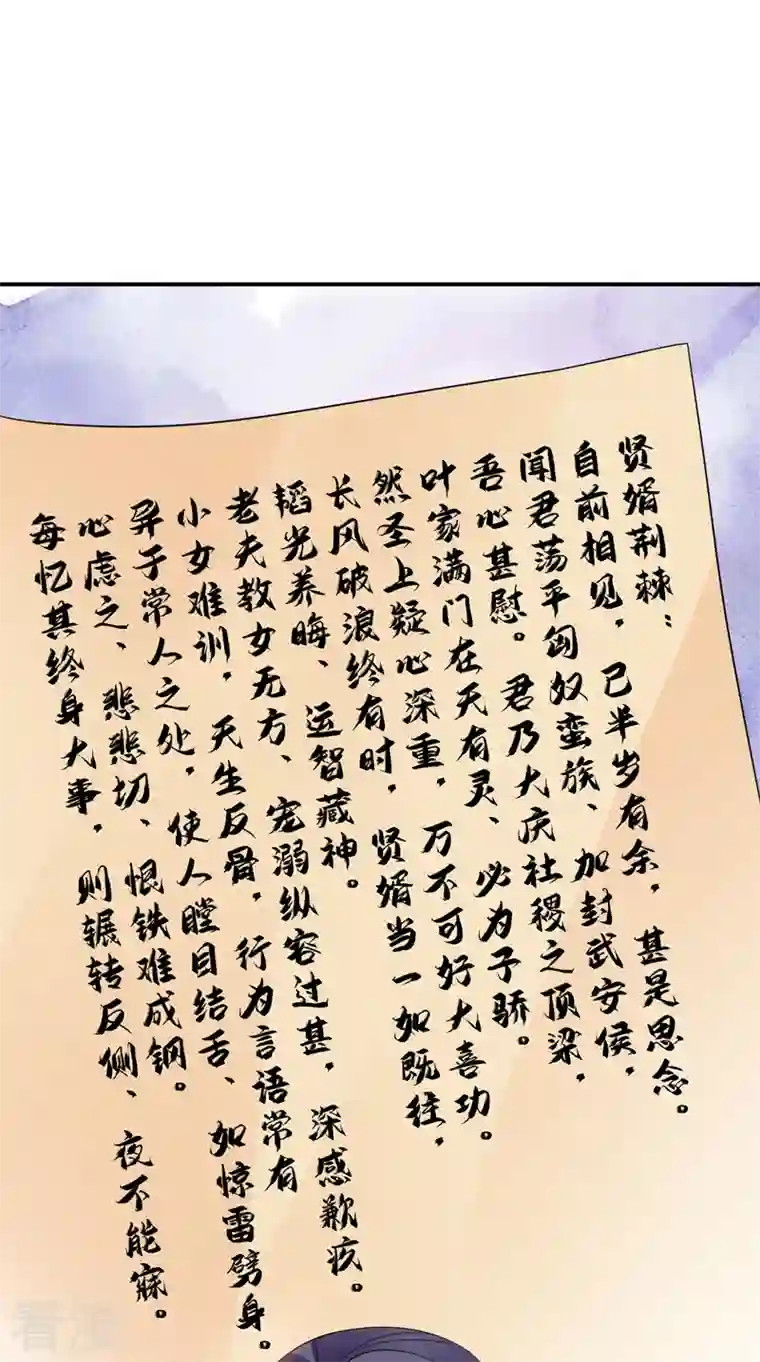 贤婿荆棘：
自前相见，已半岁有余，甚是思念。
闻君荡平匈奴蛮族、加封武安侯，
吾心甚慰。君乃大庆社稷之顶梁，
叶家满门在天有灵、必为子骄。
然圣上疑心深重，万不可好大喜功。
长风破浪终有时，贤婿当一如既往，
韬光养晦、运智藏神。
老夫教女无方、宠溺纵容过甚，深感歉疚。
小女难训，天生反骨，行为言语常有
异于常人之处，使人瞠目结舌、如惊雷劈身。
心虑之、悲悲切、恨铁难成钢。
每忆其终身大事，则辗转反侧、夜不能寐。